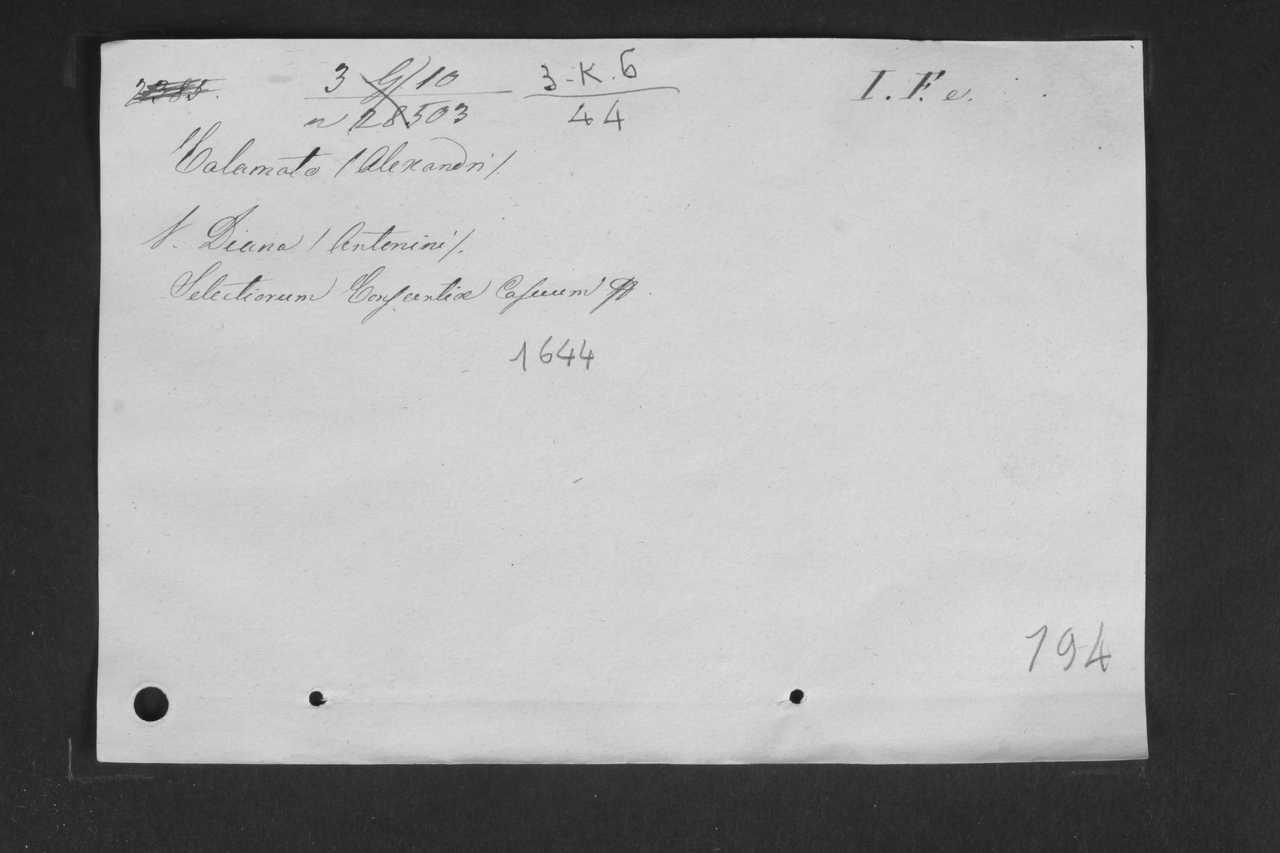 3 G/10 3-K.6 I. F. e.
n 28503 44
Calamato (Alexandri).
V. Diana (Antonini).
Selectiorum Conscientiæ Casuum
1644
194